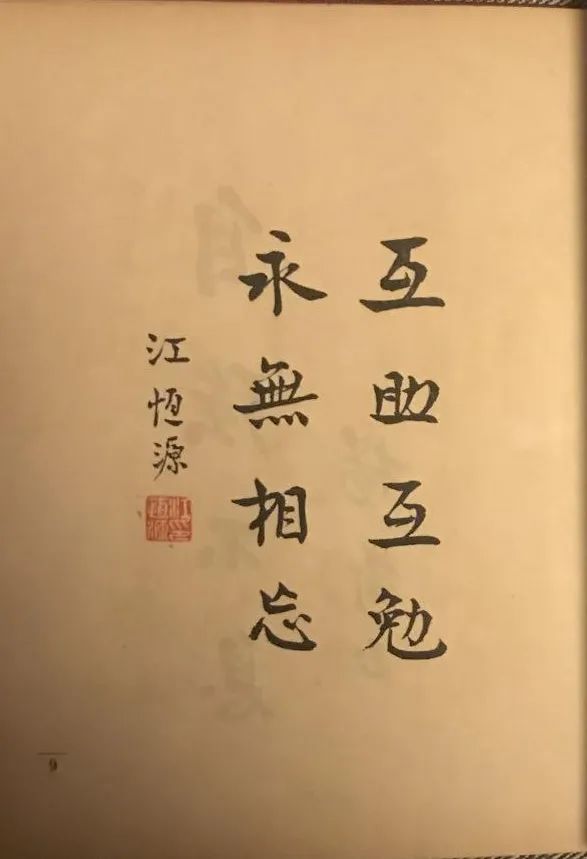 互助互勉
永無相忘
江恆源
9